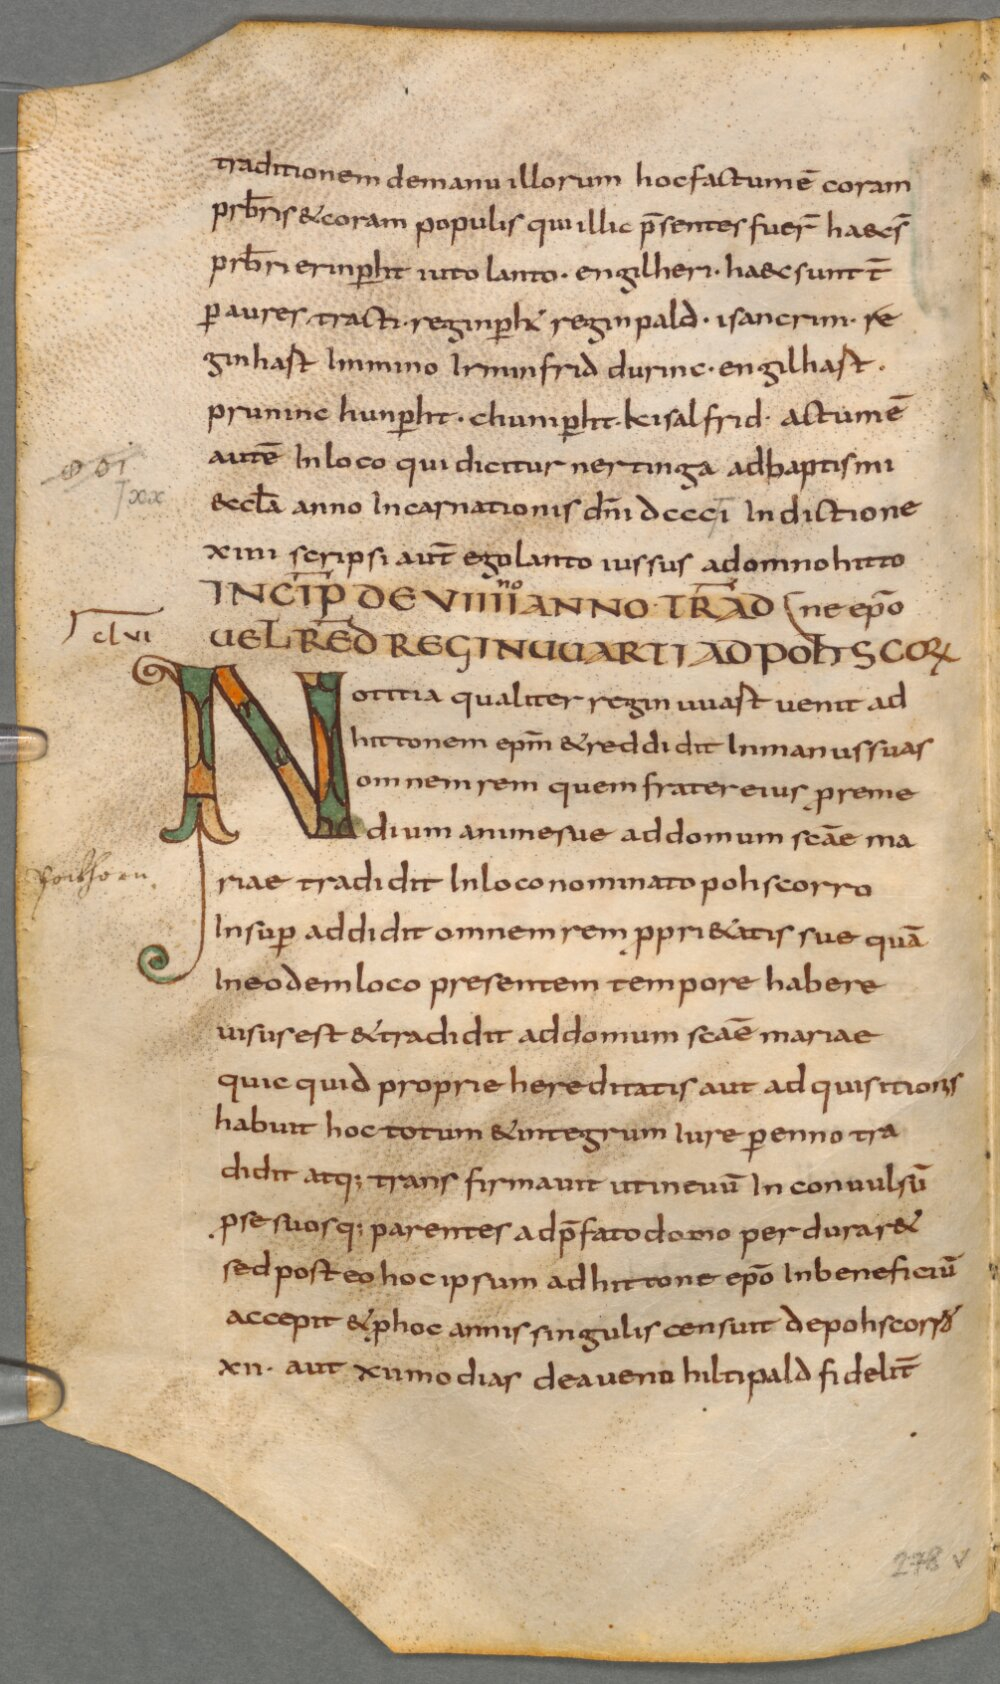 traditionem demanu illorum hocfactumē coram
prb̄ris &coram populis qui illic p̄sentes fuer̄ haecs̄
prb̄ri erinp̄ht iuto lanto · engilheri · haecsunt t̄
p aures tracti · reginp̄ht reginpald · isancrim · re
ginhast Immino Irminfrid durinc · engilhast ·
pruninc hunp̄ht · chunip̄ht · kisalfrid · actumē
autē Inloco qui dicitur nertinga adbaptismi
&ccl̄a anno Incarnationis dn̄i dccci Indictione
xiiii scripsi aut̄ egolanto iussus adomnohitto
INCIP̄ DE VIIII no ANNO · TRAD ne ep̄o
clvi
UEL RED REGINUUARTI AD POH SCOR
Notitia qualiter reginuuast uenit ad
hittonem epm̄ &reddidit Inmanussuas
omnemrem quemfratereius preme
dium animesue addomum scāe ma
Poikhorn
riae tradidit Inloconominato pohscorro
Insup addidit omnemrem ppri&atis sue quā
Ineodemloco presentem tempore habere
uisusest &tradidit addomum scāe mariae
quicquid proprie hereditatis aut adquisitionis
habuit hoc totum &integrum Iure perenno tra
didit atq; trans firmauit utineuū Inconuulsū
pse suosq; parentes adp̄fatodomo perdurar&
sedposteo hocipsum adhittone ep̄o Inbeneficiū
accepit &phoc annis singulis censuit depohscorro
xii · aut xiimodias deauena hiltipald fidelit̄
278 v